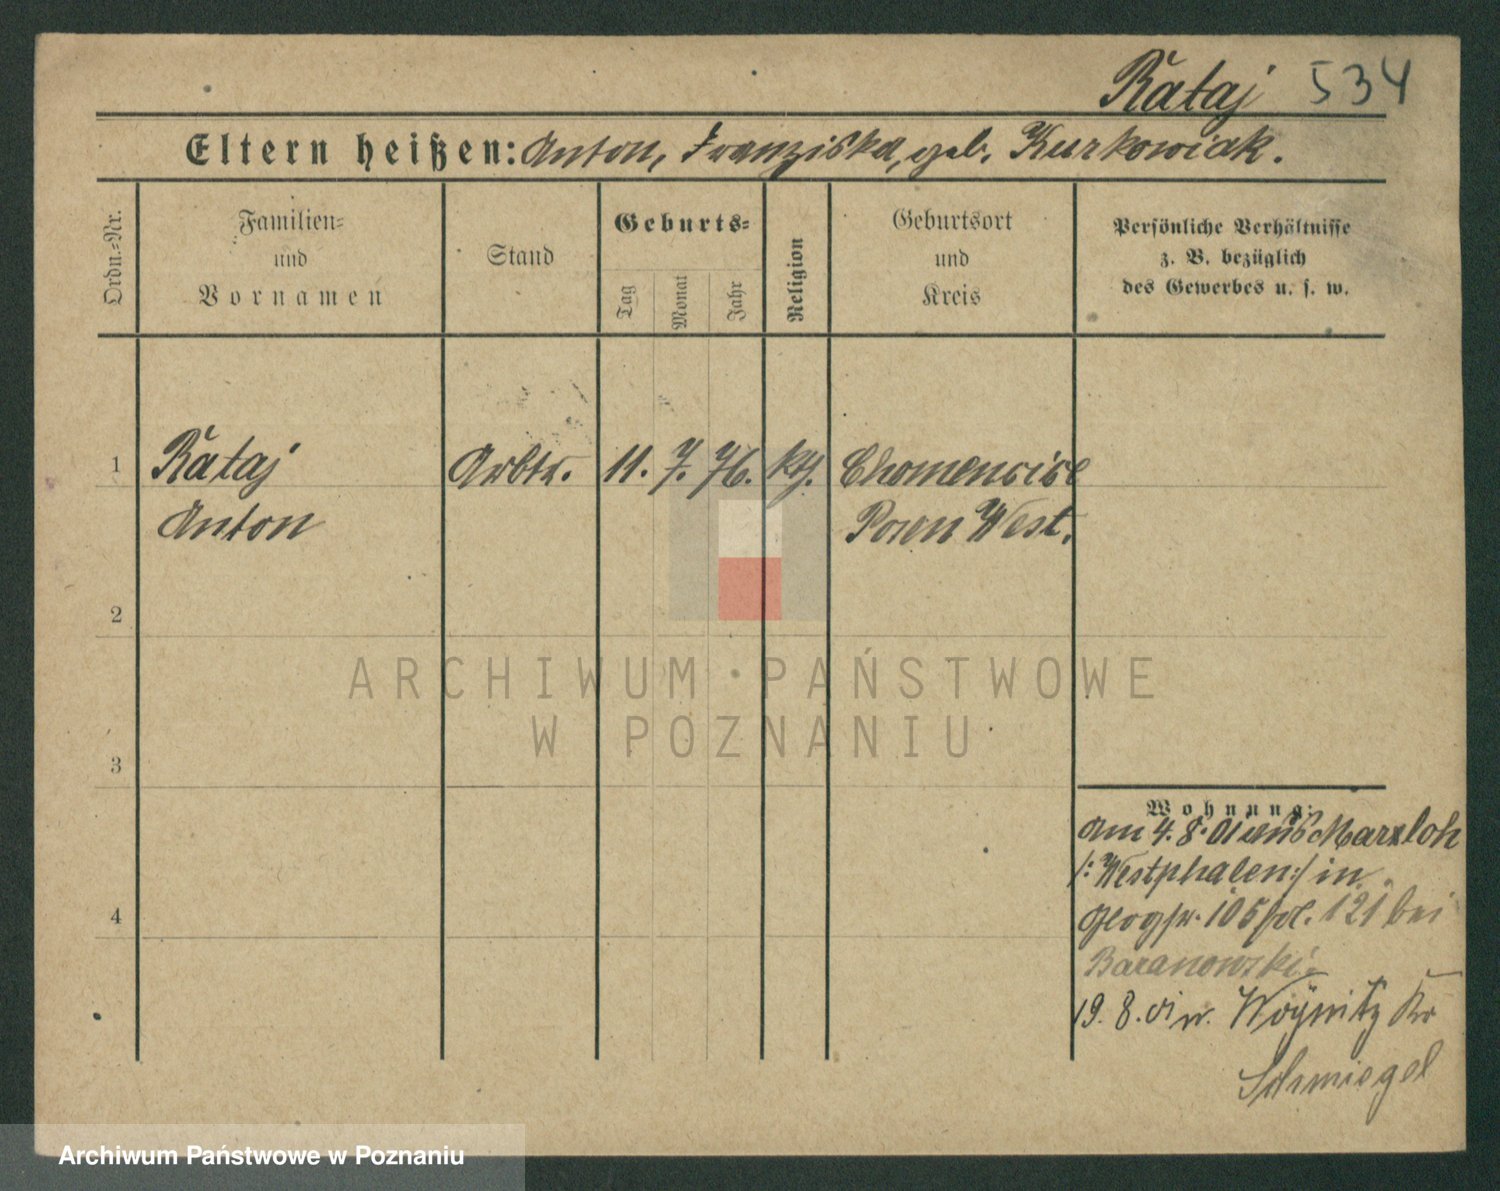 Rataj 534
Eltern heißen: Anton, Franziska, geb. Kurkowiak.
Ordn.-Nr.
Familien-
und
Vornamen
Stand
Geburts-
Tag
Monat
Jahr
Religion
Geburtsort
und
Kreis
Persönliche Verhältnisse
z. B. bezüglich
des Gewerbes u. s. w.
1 Rataj Arbtr. 11. 7. 76. kth.
Anton Posen West.
2
ARCHIWUM PAŃSTWOWE
W POZNANIU
3
Wohnung:
am 4. 8. 01 aus Marxloh
/: Westphalen :/ in
105 121 bei
Baranowski
19. 8. 01 n. Woynitz Kr
Schmiegel
4
Archiwum Państwowe w Poznaniu